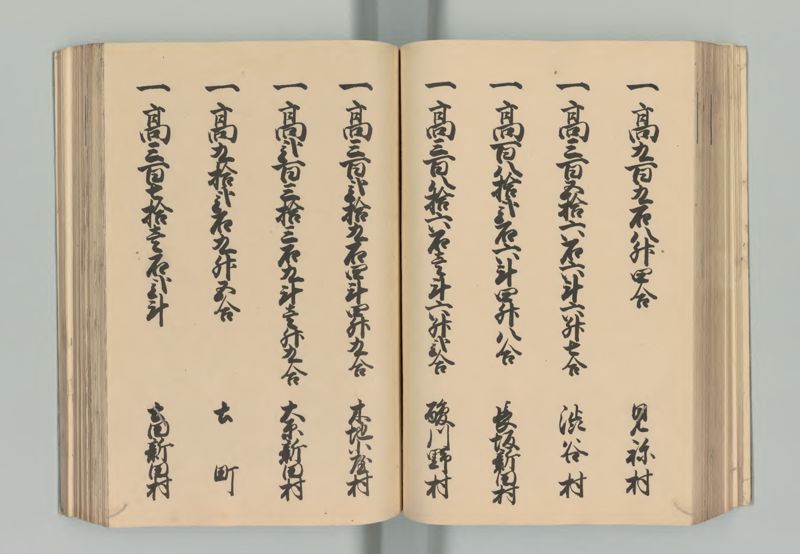 一高九百九石八升四合 見祢村
一高三百五拾六石六斗六升七合 渋谷村
一高百八拾弐石六斗四升八合 長坂新田村
一高三百八拾六石壱斗六升弐合 酸川野村
一高三百弐拾九石四斗四升九合 木地小屋村
一高弐百三拾三石九斗壱升九合 大原新田村
一高九拾弐石九升五合 古町
一高三百七拾壱石弐斗 新田村